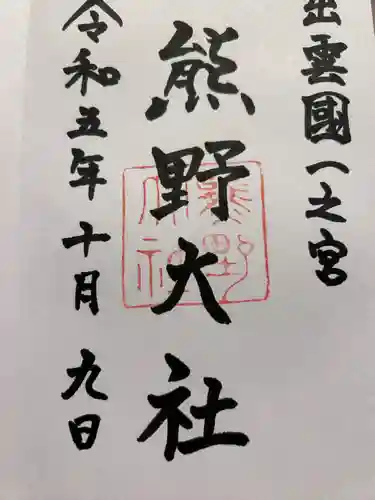 出雲國一之宮
熊野大社
熊野大社
令和五年十月九日